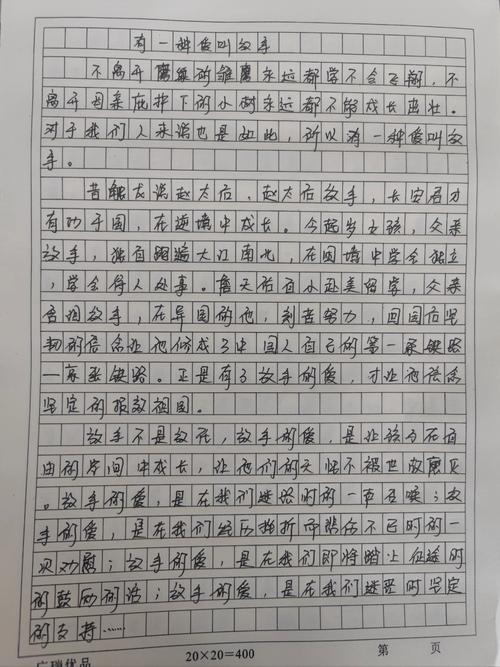 有一种爱叫放手
不离开巢的雏鹰永远都学不会飞翔，不
离开母亲庇护下的小树永远都不能成长茁壮。
对于我们人来说也是如此，所以有一种爱叫放
手。
昔触龙说赵太后，赵太后放手，长安君才
有功于国，在逆境中成长。今起岁女孩，父亲
放手，独自踏遍大江南北，在困境中学会独立
，学会待人处事。詹天佑自小赴美留学，父亲
放手，在异国的他，刻苦努力，回国后坚
韧的信念让他修成了中国人自己的第一条铁路
—京张铁路。正是有了放手的爱，才让他信念
坚定的报效祖国。
放手不是放任，放手的爱，是让孩子在自
由的空间中成长，让他们的天性不被世故磨灭
。放手的爱，是在我们迷路时的一声召唤；放
手的爱，是在我们经历挫折而悲伤不已时的一
次劝慰；放手的爱，是在我们即将踏上征途时
的鼓励的话；放手的爱，是在我们迷茫时坚定
的支持……
20×20=400
第 页
广瑞优品